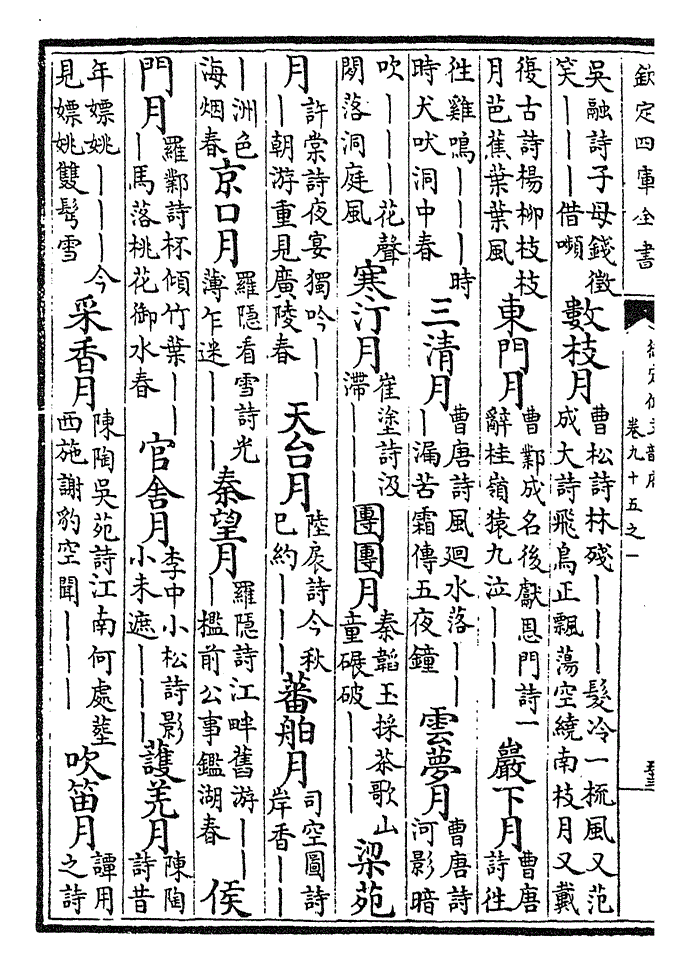 欽定四庫全書
御定佩文韻府
卷九十五之一
吳融詩子母錢徵笑｜｜｜借嚬 數枝月 曹松詩林殘｜｜｜髮冷一梳風又范成大詩飛烏正飄蕩空繞南枝月又戴
復古詩楊柳枝枝月芭蕉葉葉風 東門月 曹鄴成名後獻恩門詩一辭桂嶺猿九泣｜｜｜ 巖下月 曹唐詩往
往雞鳴｜｜｜時時犬吠洞中春 三清月 曹唐詩風廻水落｜｜｜漏苦霜傳五夜鐘 雲夢月 曹唐詩河影暗
吹｜｜｜花聲閒落洞庭風 寒汀月 崔塗詩汲滯｜｜｜ 團團月 秦韜玉採茶歌山童碾破｜｜｜ 梁苑
月 許棠詩夜宴獨吟｜｜｜朝游重見廣陵春 天台月 陸展詩今秋已約｜｜｜ 蕃舶月 司空圖詩岸香｜｜
｜洲色海烟春 京口月 羅隱看雪詩光薄乍迷｜｜｜ 秦望月 羅隱詩江畔舊游｜｜｜檻前公事鑑湖春 侯
門月 羅鄴詩杯傾竹葉｜｜｜馬落桃花御水春 官舍月 李中小松詩影小未遮｜｜｜ 護羌月 陳陶詩昔
年嫖姚｜｜｜今見嫖姚雙鬢雪 采香月 陳陶吳苑詩江南何處塟西施謝豹空聞｜｜｜ 吹笛月 譚用之詩